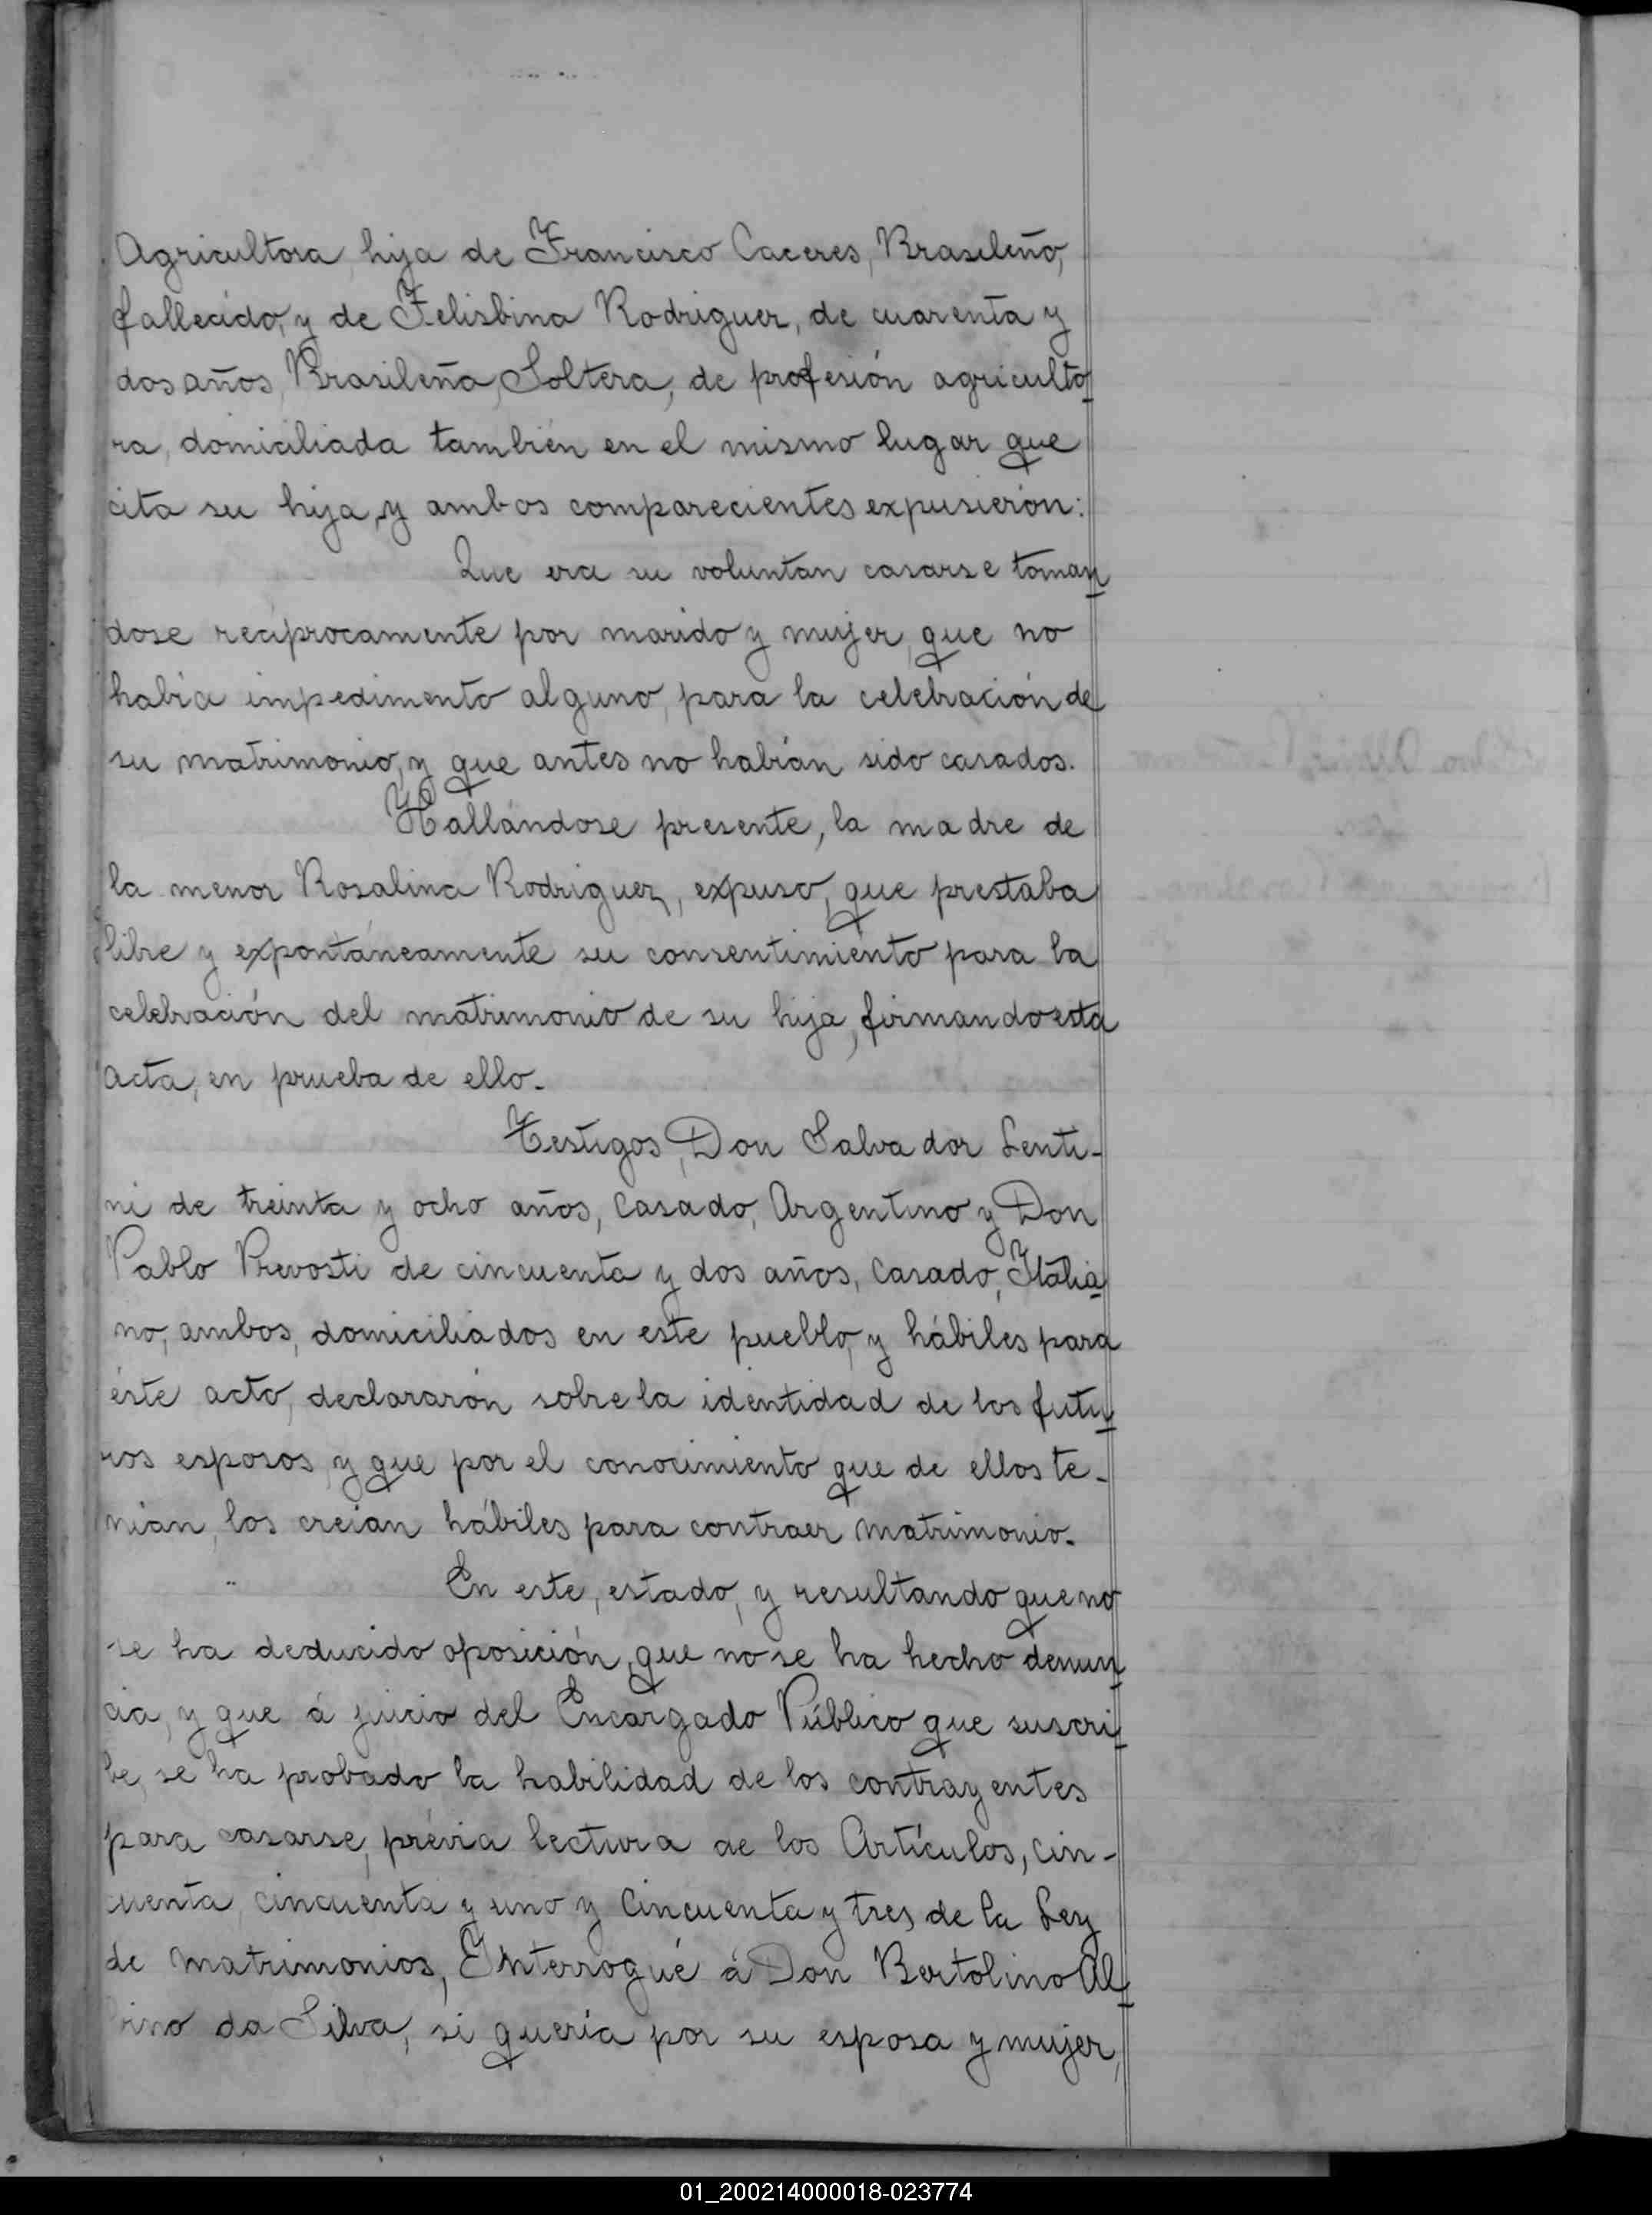 Agricultora, hija de Francisco Caceres, Brasileño,
fallecido, y de Felisbina Rodriguez, de cuarenta y
dos años, Brasileña, Soltera, de profesión agriculto
ra, domiciliada también en el mismo lugar que
cita su hija, y ambos comparecientes expusierón:
Que era su voluntan casarse toman
dose recíprocamente por marido y mujer, que no
había impedimento alguno, para la celebración de
su matrimonio, y que antes no habían sido casados.
Hallándose presente, la madre de
la menor Rosalina Rodriguez, expuso, que prestaba
libre y expontáneamente su consentimiento para la
celebración del matrimonio de su hija, firmando esta
acta, en prueba de ello.-
Testigos, Don Salvador Lenti-
ni de treinta y ocho años, Casado, Argentino y Don
Pablo Prevosti de cincuenta y dos años, Casado, Italia
no, ambos, domiciliados en este pueblo, y hábiles para
éste acto, declararón sobre la identidad de los futu
ros esposos, y que por el conocimiento que de ellos te-
nian, los creían hábiles para contraer matrimonio.-
En este, estado, y resultando que no
se ha deducido oposición, que no se ha hecho denun
cia, y que á juicio del Encargado Público que suscri
be, se ha probado la habilidad de los contrayentes
para casarse, prévia lectura de los Artículos, cin-
cuenta, cincuenta y uno y Cincuenta y tres de la Ley
de Matrimonios, Enterrogué á Don Bertolino Al
bino da Silva, si quería por su esposa y mujer,
01_200214000018-023774